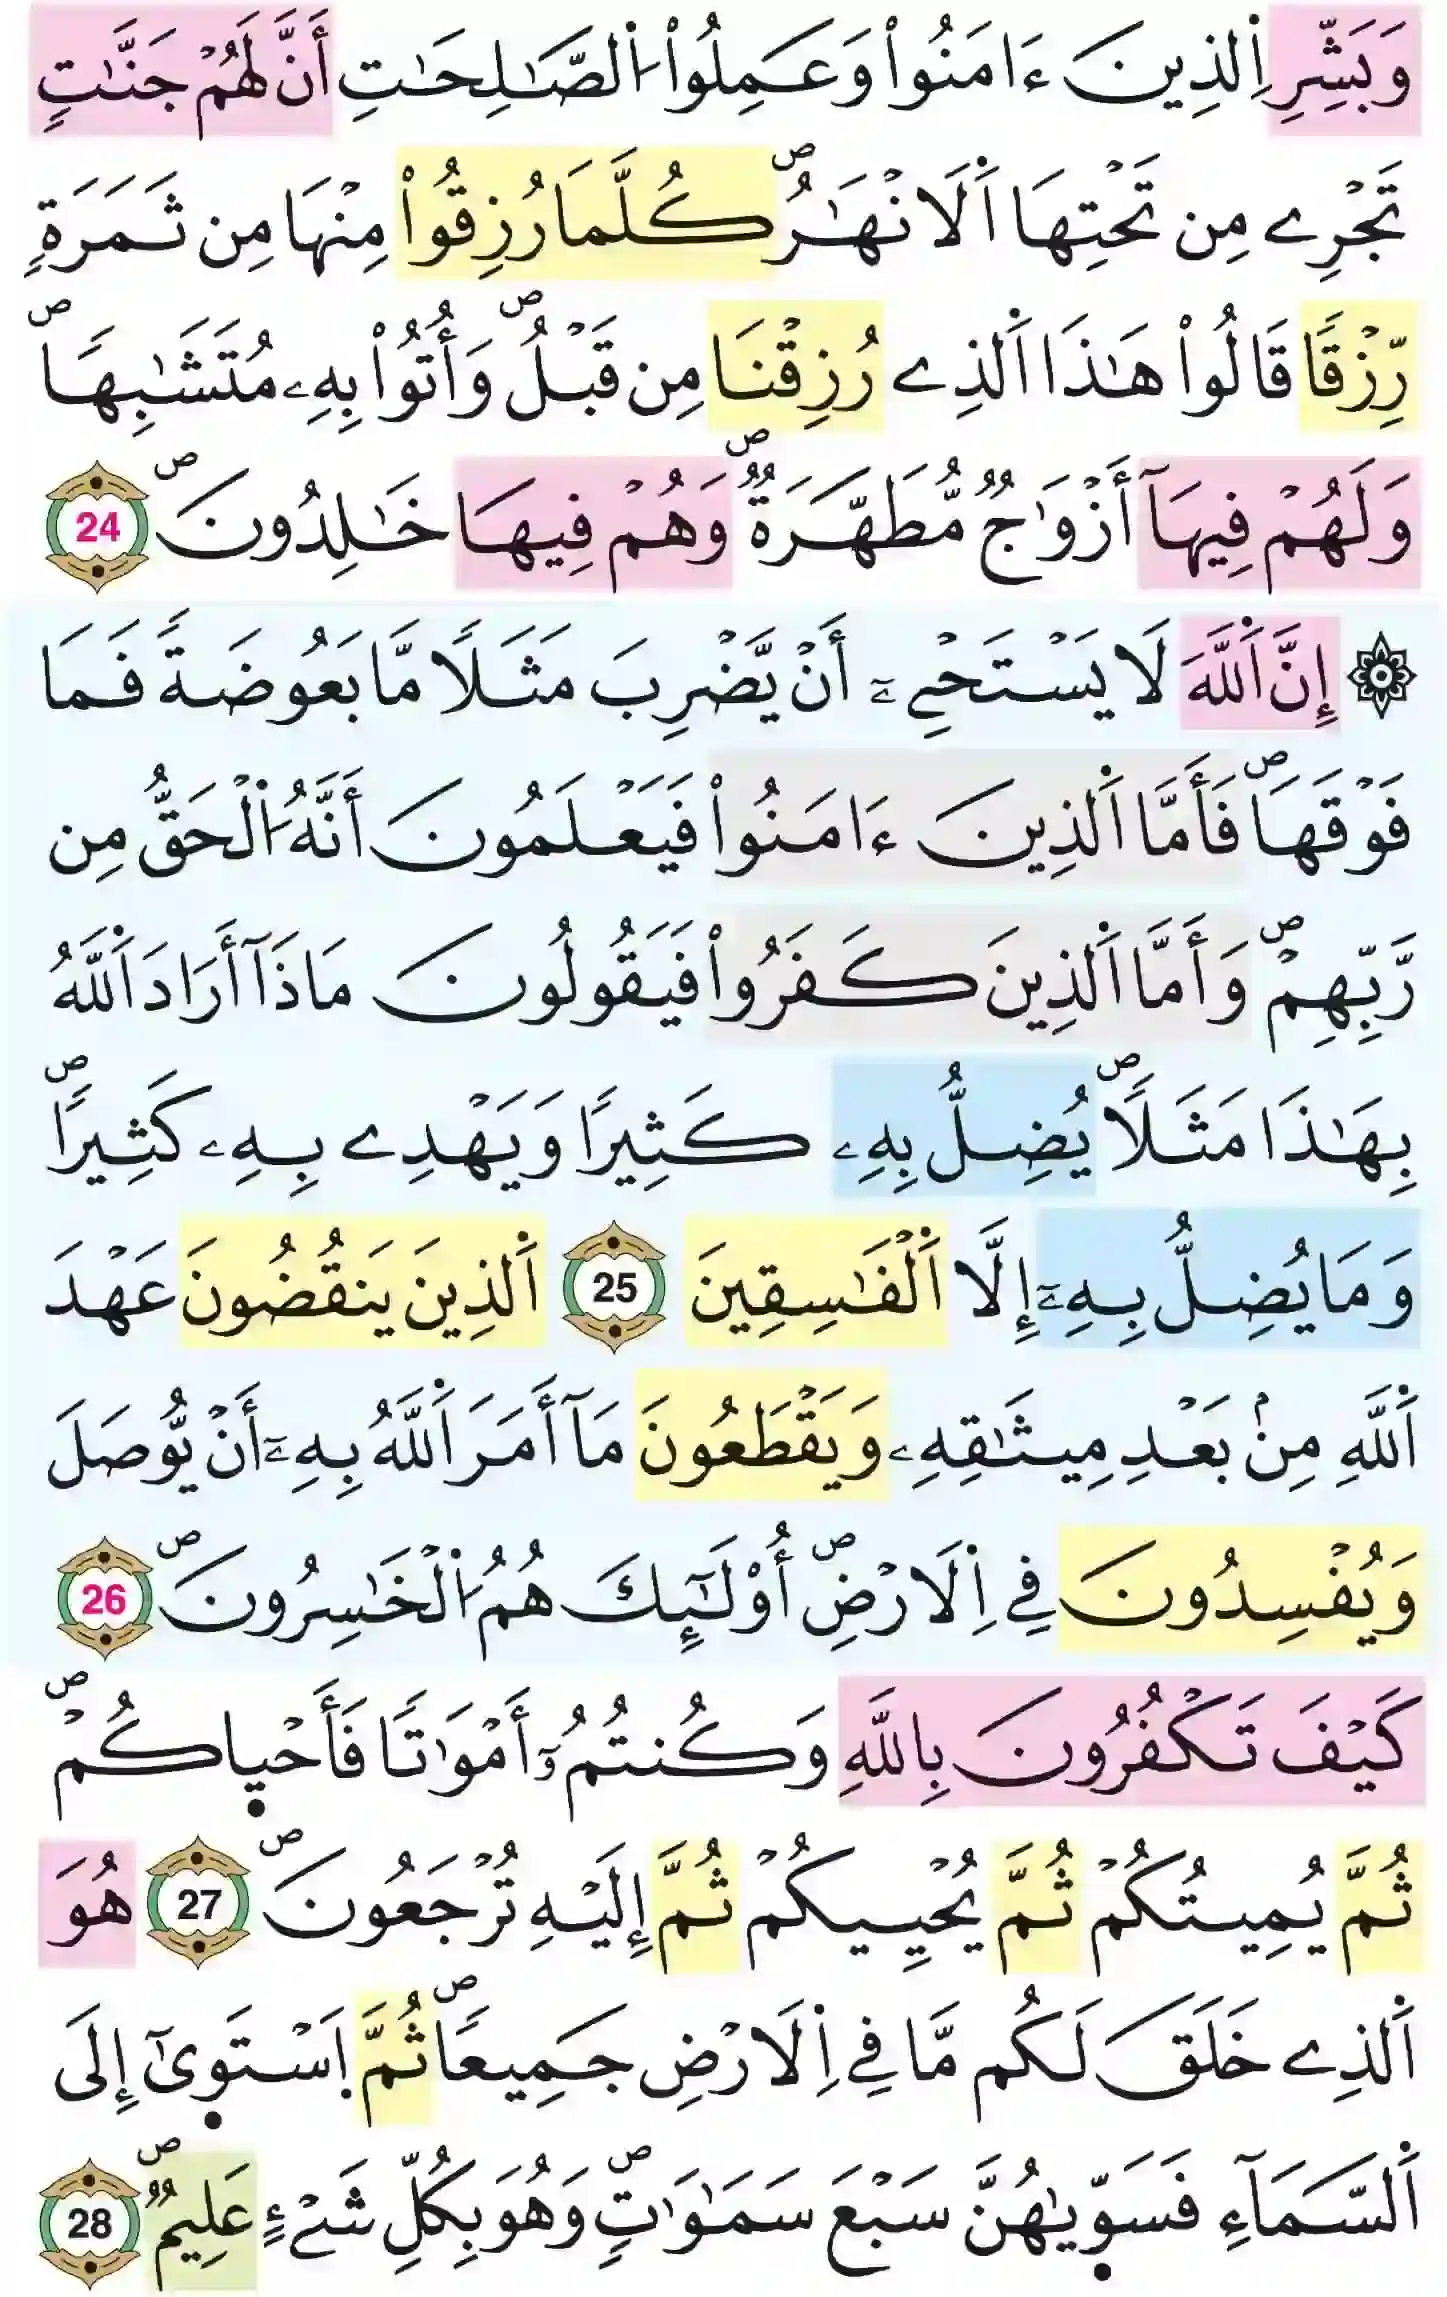 وَبَشِّرِ اِ۬لذِينَ ءَامَنُواْ وَعَمِلُواْ اُ۬لصَّٰلِحَٰتِ أَنَّ لَهُمْ جَنَّٰتٖ
تَجْرِے مِن تَحْتِهَا اَ۬لَانْهَٰرُۖ كُلَّمَا رُزِقُواْ مِنْهَا مِن ثَمَرَةٖ
رِّزْقاٗ قَالُواْ هَٰذَا اَ۬لذِے رُزِقْنَا مِن قَبْلُۖ وَأُتُواْ بِهِۦ مُتَشَٰبِهاٗۖ
وَلَهُمْ فِيهَآ أَزْوَٰجٞ مُّطَهَّرَةٞۖ وَهُمْ فِيهَا خَٰلِدُونَۖ 24
۞ إِنَّ اَ۬للَّهَ لَا يَسْتَحْيِۦٓ أَنْ يَّضْرِبَ مَثَلاٗ مَّا بَعُوضَةٗ فَمَا
فَوْقَهَاۖ فَأَمَّا اَ۬لذِينَ ءَامَنُواْ فَيَعْلَمُونَ أَنَّهُ اُ۬لْحَقُّ مِن
رَّبِّهِمْۖ وَأَمَّا اَ۬لذِينَ كَفَرُواْ فَيَقُولُونَ مَاذَآ أَرَادَ اَ۬للَّهُ
بِهَٰذَا مَثَلاٗۖ يُضِلُّ بِهِۦ كَثِيراٗ وَيَهْدِے بِهِۦ كَثِيراٗۖ
وَمَا يُضِلُّ بِهِۦٓ إِلَّا اَ۬لْفَٰسِقِينَ 25 اَ۬لذِينَ يَنقُضُونَ عَهْدَ
اَ۬للَّهِ مِنۢ بَعْدِ مِيثَٰقِهِۦ وَيَقْطَعُونَ مَآ أَمَرَ اَ۬للَّهُ بِهِۦٓ أَنْ يُّوصَلَ
وَيُفْسِدُونَ فِے اِ۬لَارْضِۖ أُوْلَٰٓئِكَ هُمُ اُ۬لْخَٰسِرُونَۖ 26
كَيْفَ تَكْفُرُونَ بِاللَّهِ وَكُنتُمُۥٓ أَمْوَٰتاٗ فَأَحْي۪اكُمْۖ
ثُمَّ يُمِيتُكُمْ ثُمَّ يُحْيِيكُمْ ثُمَّ إِلَيْهِ تُرْجَعُونَۖ 27 هُوَ
اَ۬لذِے خَلَقَ لَكُم مَّا فِے اِ۬لَارْضِ جَمِيعاٗۖ ثُمَّ اَ۪سْتَو۪يٰٓ إِلَى
اَ۬لسَّمَآءِ فَسَوّ۪يٰهُنَّ سَبْعَ سَمَٰوَٰتٖۖ وَهُوَ بِكُلِّ شَےْءٍ عَلِيمٞۖ 28